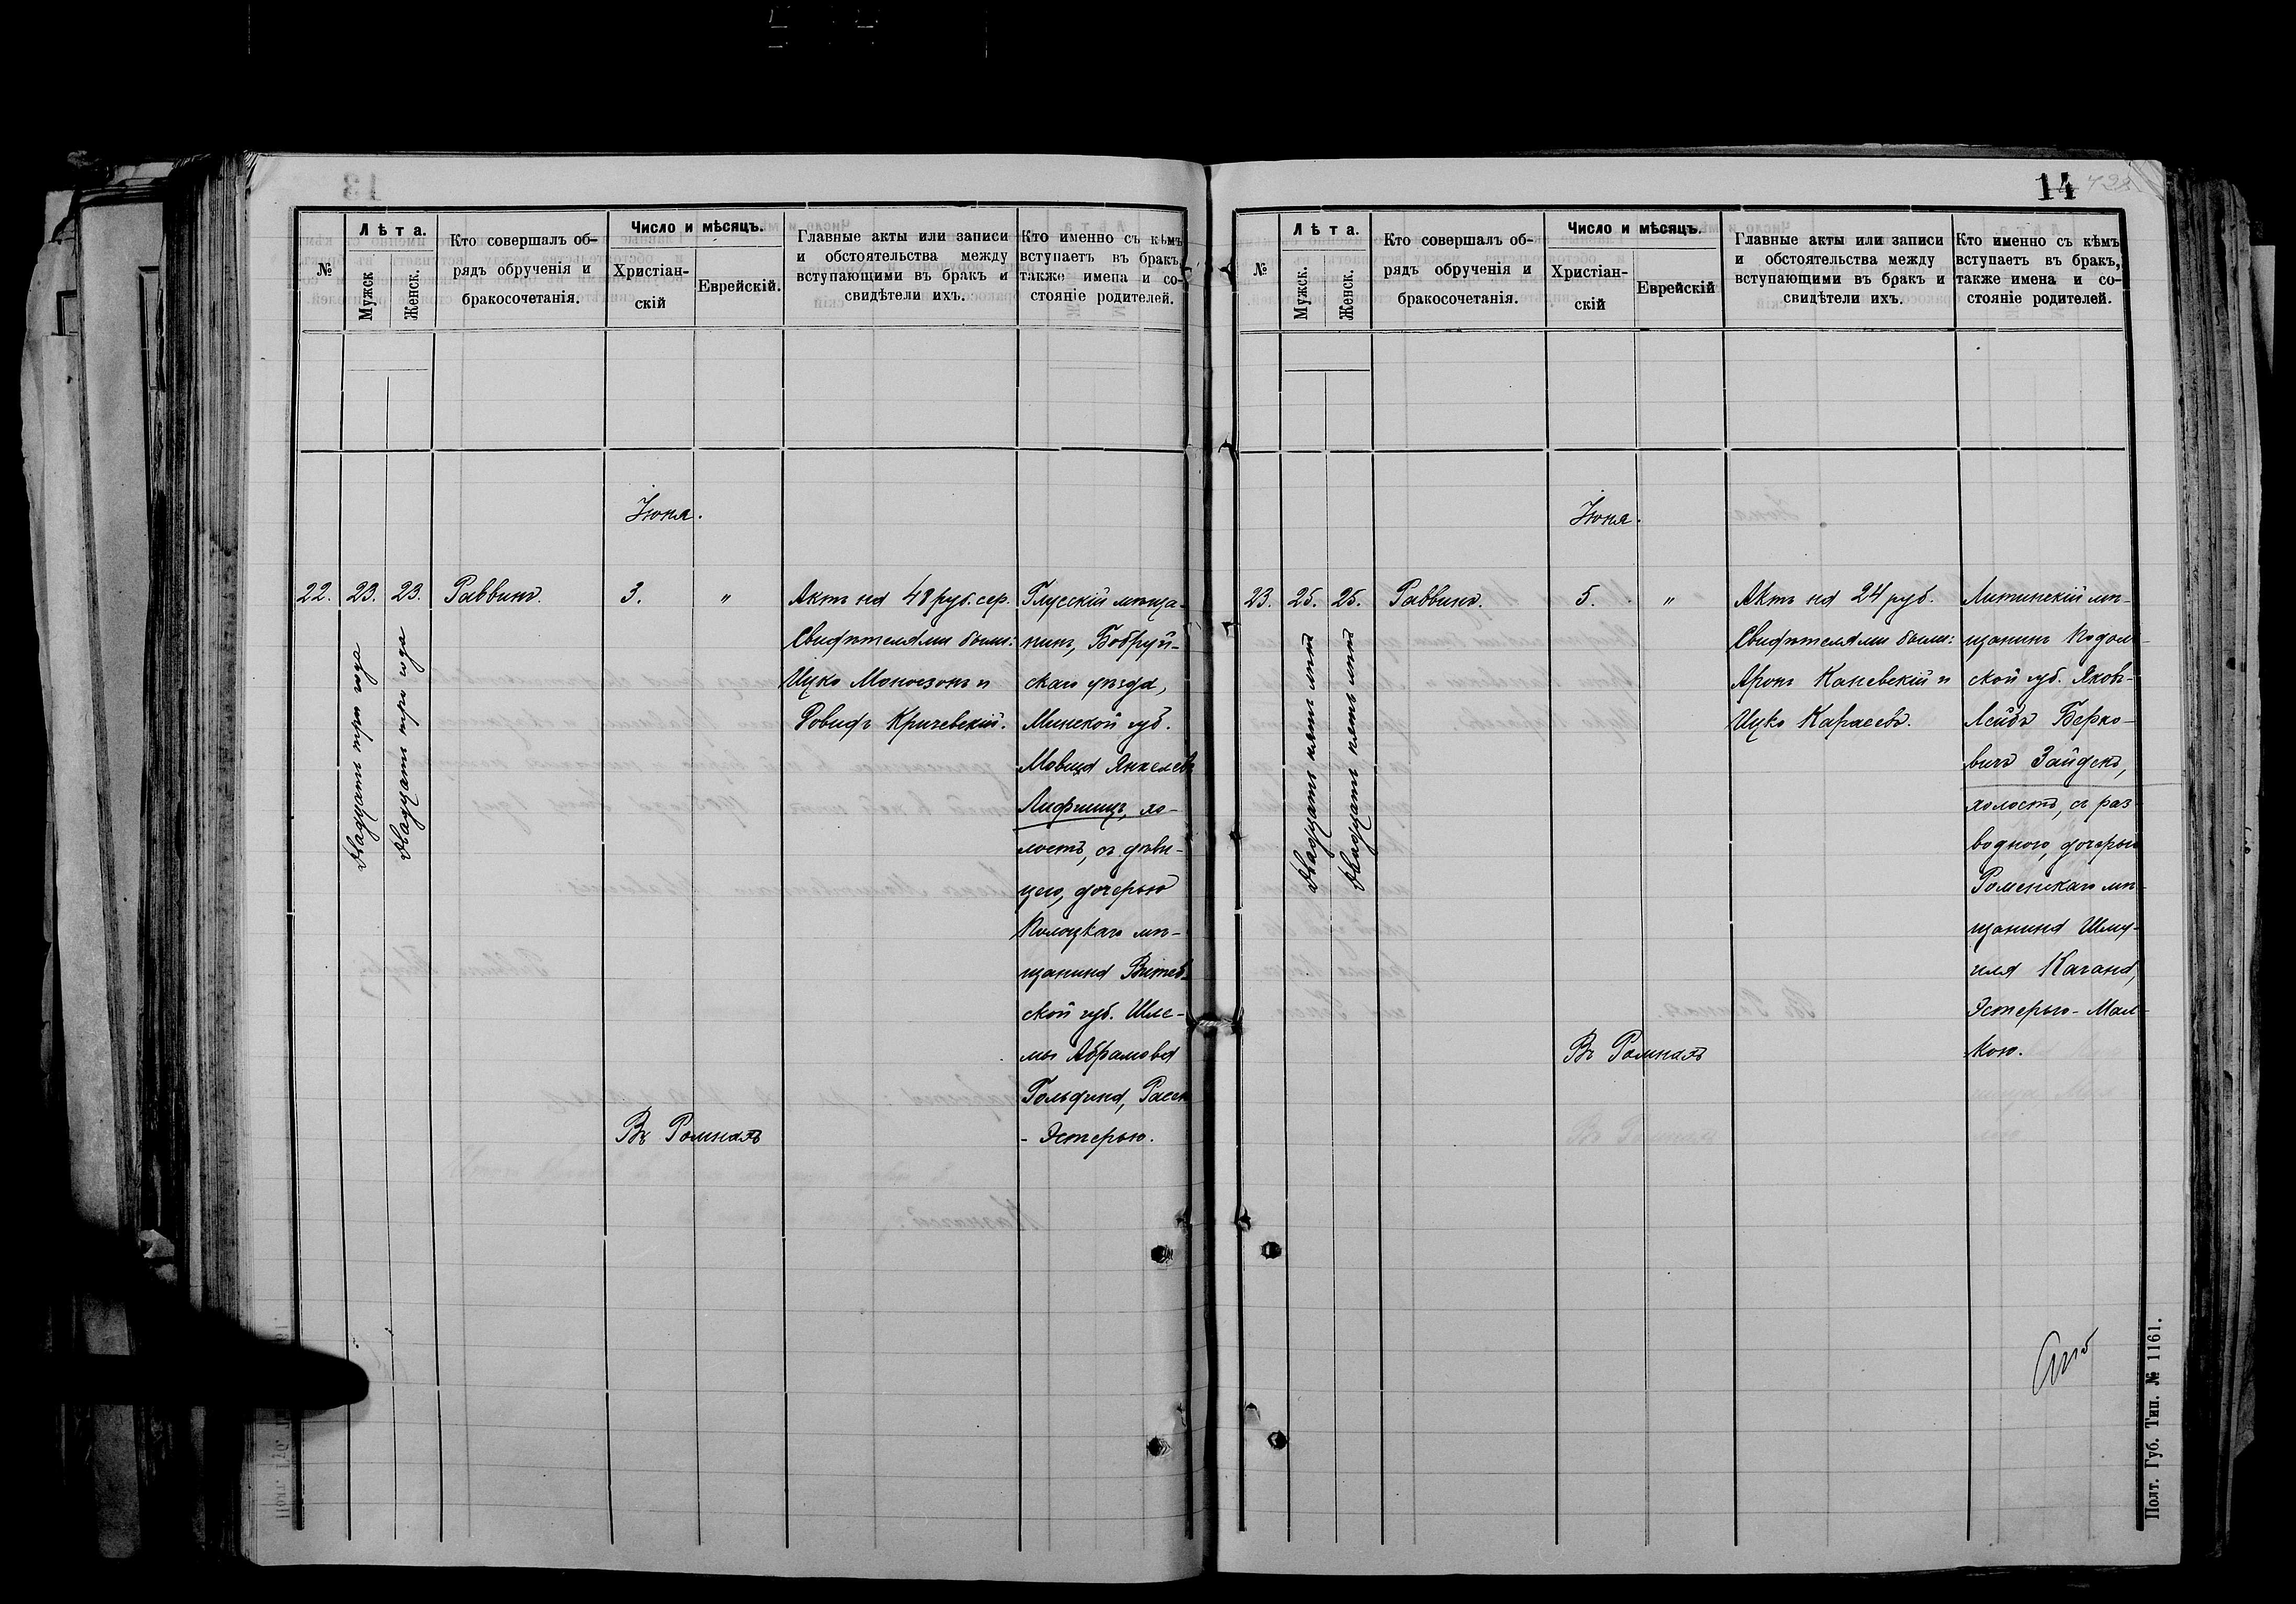 Лѣта.
Число и мѣсяцъ.
№
Мужск
Женск.
Кто совершалъ об-
рядъ обрученія и
бракосочетанія.
Христіан-
скій
Еврейскій.
Главные акты или записи
и обстоятельства между
вступающими въ бракъ и
свидѣтели ихъ.
Кто именно съ кѣмъ
вступаетъ въ бракъ,
также имена и со-
стояніе родителей.
Іюня.
22.
23.
23.
Двадцать три года
Двадцать три года
Раввинъ.
3.
"
Актъ на 48 руб. сер.
Свидѣтелями были:
Ицко Моносзонъ и
Довидъ Кричевскій.
Глусскій мѣща-
нинъ, Бобруй-
скаго уѣзда,
Минской губ.
Мовша Янкелевъ
Лифшицъ, хо-
лостъ, съ дѣви-
цею, дочерью
Полоцкаго мѣ-
щанина Витеб-
ской губ. Шле-
мы Абрамова
Гольдина, Расею
- Эстерью.
Въ Ромнахъ
14
Лѣта.
Число и мѣсяцъ.
№
Мужск.
Женск.
Кто совершалъ об-
рядъ обрученія и
бракосочетанія.
Христіан-
скій
Еврейскій
Главные акты или записи
и обстоятельства между
вступающими въ бракъ и
свидѣтели ихъ.
Кто именно съ кѣмъ
вступаетъ въ бракъ,
также имена и со-
стояніе родителей.
Іюня.
23.
25.
25.
Двадцать пять лѣтъ
Двадцать пять лѣтъ
Раввинъ.
5.
"
Актъ на 24 руб.
Свидѣтелями были:
Аронъ Каневскій и
Ицко Карасевъ.
Литинскій мѣ-
щанинъ Подоль-
ской губ. Яковъ-
Лейбъ Берко-
вичъ Зайдекъ,
холостъ, съ раз-
водною, дочерью
Роменскаго мѣ-
щанина Шму-
иля Кагана,
Эстерью-Мал-
кою.
Въ Ромнахъ
Полт. Губ. Тип. № 1161.